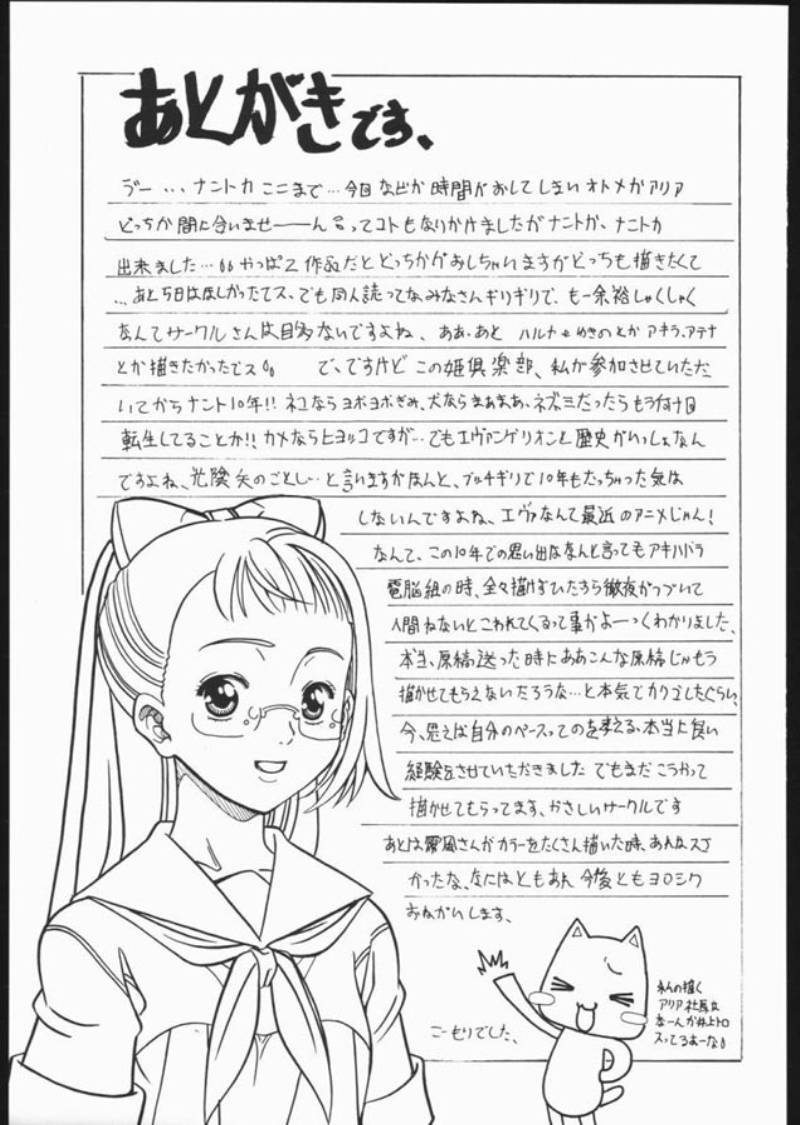 あとがきです、
ラー ... ナントカ ここまで…今回 などか 時間がおしてしまい オトメかアリア
どっちか間に合いませーーん 言ってコトもなりかけましたがナントか、ナントカ
出来ました…。。やっぱ2作品だとどっちかがおしちゃいますがどっちも描きたくて
…あと5日はほしかったでス、でも同人読ってなみなさんギリギリで、も一余裕しゃくしゃく
なんてサークルさんは目多ないですよね、ああ、あと ハルナ やゆきのとか アキラ、アテナ
とか描きたかったでス。。 で、ですけど この姫倶楽部、私が参加させていただ
いてからナント10年!! ネコならヨボヨボぎみ、犬ならまぁまぁ、ネズミだったらもう 回
転生してることか!! カメならヒヨッコですが…でもエヴァンゲリオンと歴史がいっしょなん
ですよね、光陰矢のごとし…と言いますがほんと、ブッチギリで10年もたっちゃった気は
しないんですよね、エヴァなんて最近のアニメじゃん!
なんて、この10年での思い出はなんと言ってもアキハバラ
電脳組の時、全々描けずひたすら徹夜がつづいて
人間ねないとこわれてくるって事がよーっくわかりました、
本当、原稿送った時にああこんな原稿じゃもう
描かせてもらえないだろうな…と本気でカクゴしたぐらい、
今、思えば自分のペースってのを考える、本当に良い
経験をさせていただきました でもまだこうやって
描かせてもらってます、やさしいサークルです
あとは 風さんがカラーをたくさん描いた時、あんなスゴ
かったな、なにはともあれ 今後ともヨロシク
おねがいします、
こーセりでした、
れんの描く
アリア社長は
なーんか井上トロ
スってるなーな。